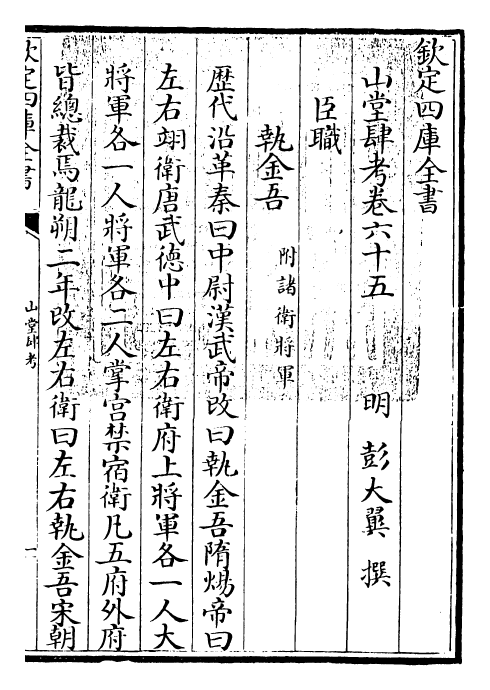 欽定四庫全書
山堂肆考卷六十五　明　彭大翼　撰
臣職
執金吾　附諸衛將軍
歷代沿革秦曰中尉漢武帝改曰執金吾隋煬帝曰
左右翊衛唐武德中曰左右衛府上將軍各一人大
將軍各一人將軍各二人掌宫禁宿衛凡五府外府
皆總裁焉龍朔二年改左右衛曰左右執金吾宋朝
欽定四庫全書
山堂肆考
一